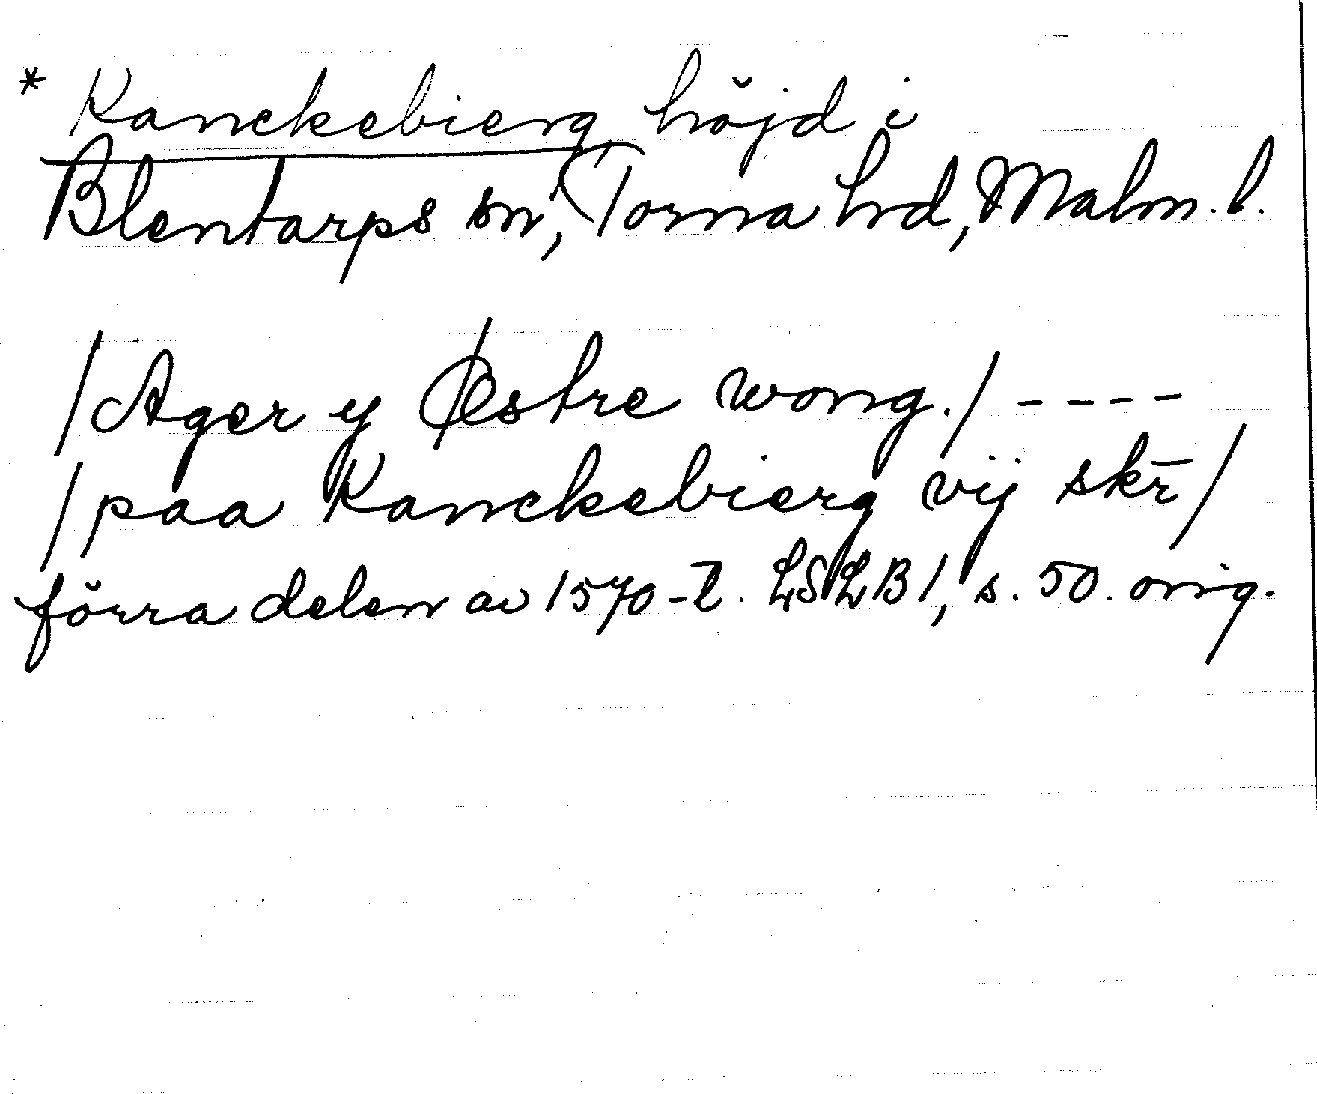 * Kanckebierg höjd i
Blentarps sn, Torna hd, Malm. l.
/Ager y Østre wong./ - - - -
/paa Kanckebierg vij skr̄/
förra delen av 1570-t. LSLB 1, s. 50. orig.